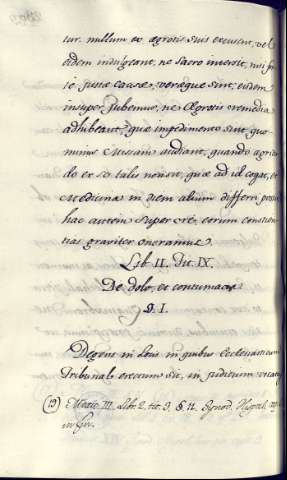 tur. nullum ex ægrotis suis excusent, vel
eidem indulgeant, ne Sacro intersit, nisi
justæ causæ, veræque sint; eidem
insuper jubemus, ne Ægrotis remedia
adhibeant, quæ impedimento sint, quo
minus Missam audiant, quando ægritu
do ex se talis non sit, quæ ad id cogat, et
Medicina in diem alium differri
hac autem super re, eorum conscien
tias graviter oneramus.
Lib. II. Tit. IX.
De dolo, et contumacia
§. I.
Degens in locis in quibus Ecclesiasticum
Tribunal erectum sit, in juditium
(19) Mexic. III. Libr. 2. tit. 3. §. II. Synod. Hispal.